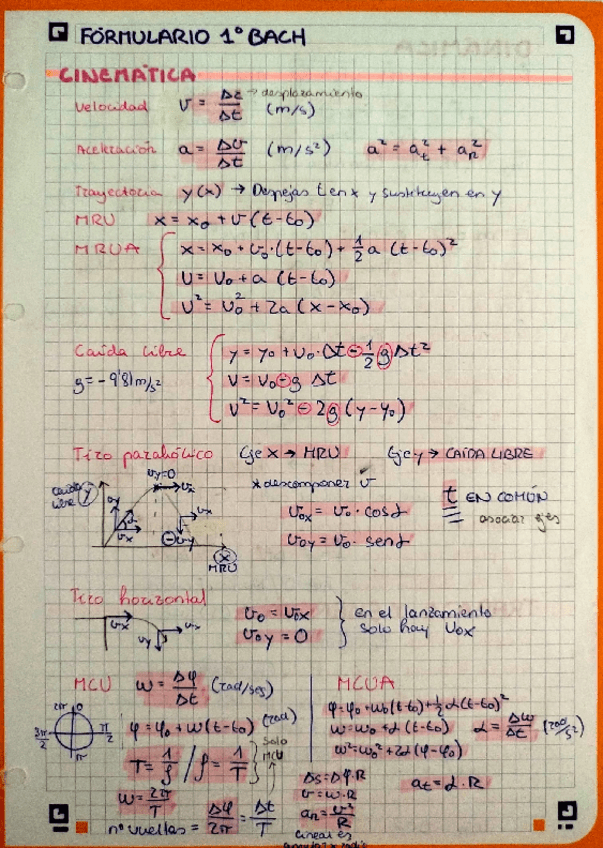 FÓRMULARIO 1º BACH
CINEMÁTICA
Velocidad v = Δr/Δt → desplazamiento (m/s)
Aceleración a = Δv/Δt (m/s²) a² = aₜ² + aₙ²
Trayectoria y(x) → Despejas t en x y sustituyen en y
MRU x = x₀ + v (t - t₀)
MRUA x = x₀ + v₀·(t - t₀) + 1/2 a (t - t₀)²
v = v₀ + a (t - t₀)
v² = v₀² + 2a (x - x₀)
Caída libre y = y₀ + v₀·Δt - 1/2 g Δt²
g = -9'81 m/s² v = v₀ - g Δt
v² = v₀² - 2g (y - y₀)
Tiro parabólico Eje x → MRU Eje y → CAÍDA LIBRE
caída libre y
vy=0
vy
vx
vx
- vy
x
MRU
* descomponer v
v₀x = v₀ · cosα
v₀y = v₀ · senα
t EN COMÚN
asociar ejes
Tiro horizontal
vx
vy
vx
v₀ = v₀x
v₀y = 0
en el lanzamiento
solo hay v₀x
MCU ω = Δφ/Δt (rad/seg)
2π 0
3π/2
π/2
π
φ = φ₀ + ω(t - t₀) (rad)
T = 1/f / f = 1/T
solo MCU
ω = 2π/T
nº vueltas = Δφ/2π = Δt/T
MCUA
φ = φ₀ + ω₀(t - t₀) + 1/2 α (t - t₀)²
ω = ω₀ + α (t - t₀) α = Δω/Δt (rad/s²)
ω² = ω₀² + 2α (φ - φ₀)
ΔS = Δφ·R
v = ω·R
aₙ = v²/R
aₜ = α·R
lineal es